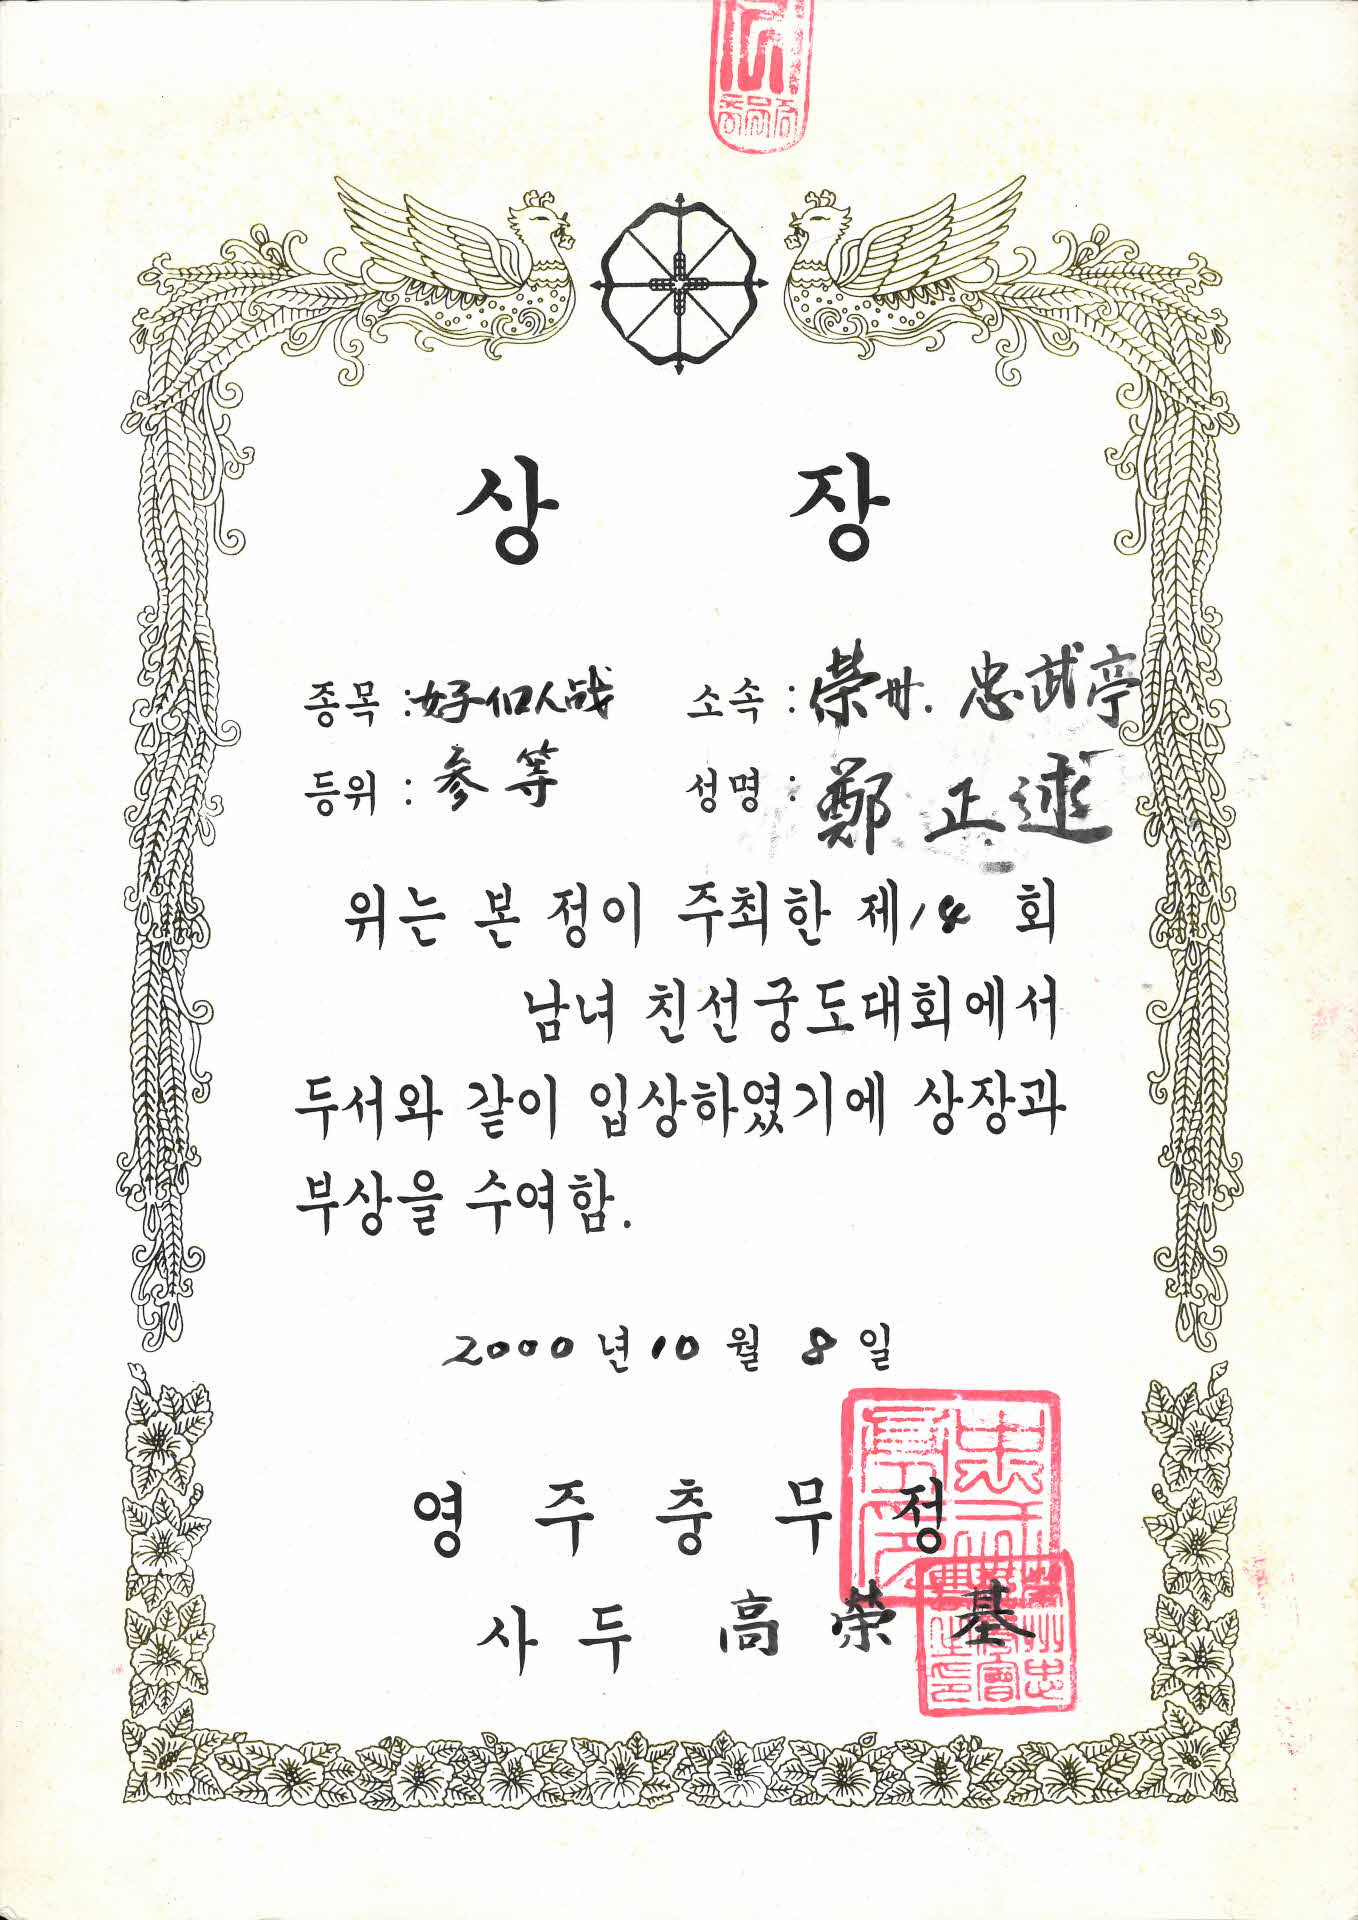 상 장
종목 : 人战 소속 : 榮州. 忠武亭
등위 : 参等 성명 : 鄭 正
위는 본 정이 주최한 제14 회
남녀 친선궁도대회에서
두서와 같이 입상하였기에 상장과
부상을 수여함.
2000 년 10 월 8 일
영 주 충 무 정
사 두 高 榮 基